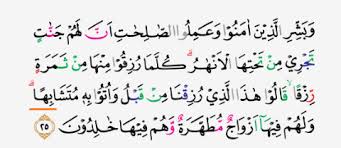 وَبَشِّرِ الَّذِيْنَ اٰمَنُوْا وَعَمِلُوا الصّٰلِحٰتِ اَنَّ لَهُمْ جَنّٰتٍ
تَجْرِيْ مِنْ تَحْتِهَا الْاَنْهٰرُۗ كُلَّمَا رُزِقُوْا مِنْهَا مِنْ ثَمَرَةٍ
رِّزْقًاۙ قَالُوْا هٰذَا الَّذِيْ رُزِقْنَا مِنْ قَبْلُ وَاُتُوْا بِهٖ مُتَشَابِهًاۗ
وَلَهُمْ فِيْهَآ اَزْوَاجٌ مُّطَهَّرَةٌ وَّهُمْ فِيْهَا خٰلِدُوْنَ ٢٥